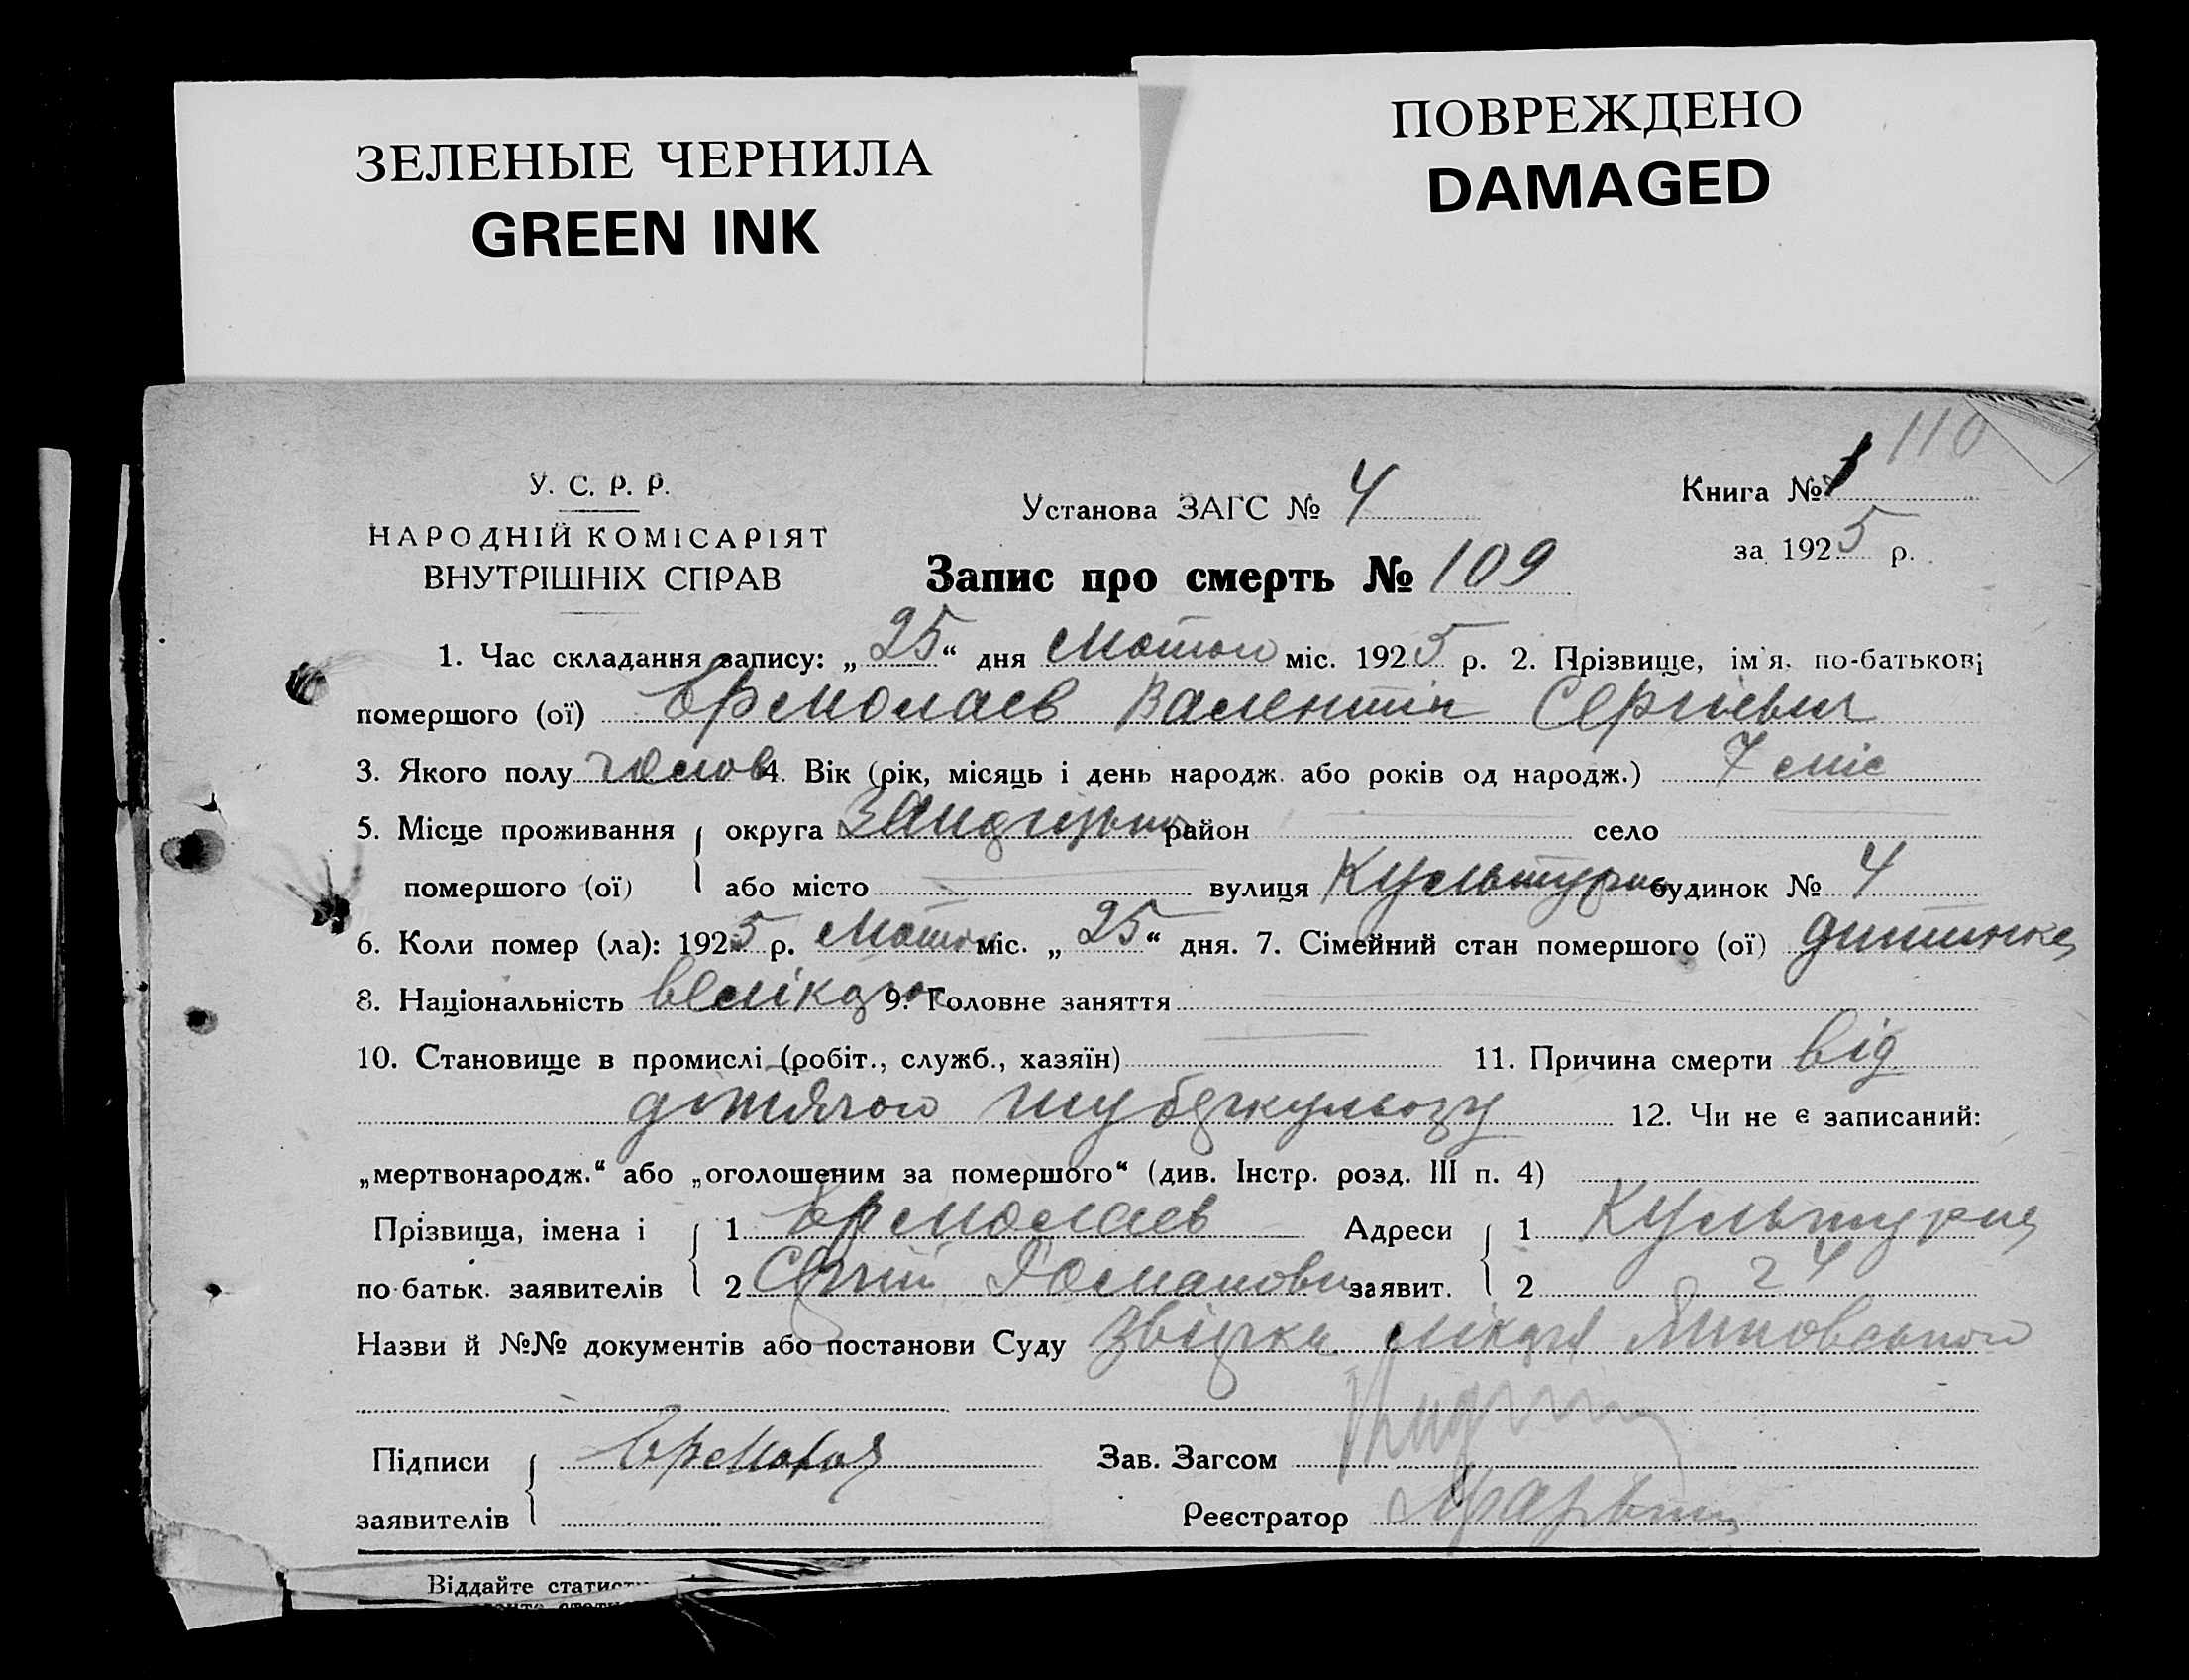 ЗЕЛЕНЫЕ ЧЕРНИЛА
GREEN INK
ПОВРЕЖДЕНО
DAMAGED
110
У. С. Р. Р.
НАРОДНІЙ КОМІСАРІЯТ
ВНУТРІШНІХ СПРАВ
Установа ЗАГС № 4
Книга № 1
за 1925 р.
Запис про смерть № 109
1. Час складання запису: „ 25 “ дня Лютого міс. 1925 р. 2. Прізвище, ім'я, по-батькові
помершого (ої) Єрмолаєв Валентін Сергієвич
3. Якого полу чолов 4. Вік (рік, місяць і день народж. або років од народж.) 7 міс
5. Місце проживання округа район село
помершого (ої) або місто вулиця Культурна будинок № 4
6. Коли помер (ла): 1925 р. Лютого міс. „ 25 “ дня. 7. Сімейний стан помершого (ої) дитинка
8. Національність велікор 9. Головне заняття
10. Становище в промислі (робіт., служб., хазяїн) 11. Причина смерти від
дитячого туберкульозу 12. Чи не є записаний:
„мертвонародж.“ або „оголошеним за помершого“ (див. Інстр. розд. III п. 4)
Прізвища, імена і 1 Єрмолаєв Адреси 1 Культурна
по-батьк. заявителів 2 Сергій Романович заявит. 2 24
Назви й №№ документів або постанови Суду лікаря
Підписи
заявителів
Зав. Загсом
Реєстратор
Віддайте статист